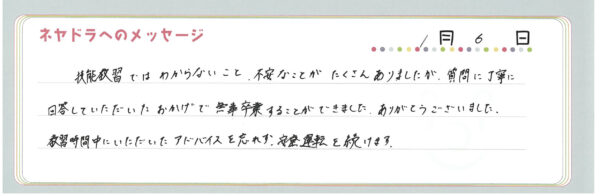 ネヤドラへのメッセージ
1月6日
技能教習ではわからないこと、不安なことがたくさんありましたが、質問に丁寧に
回答していただいたおかげで無事卒業することができました。ありがとうございました。
教習時間中にいただいたアドバイスを忘れず、安全運転を続けます。